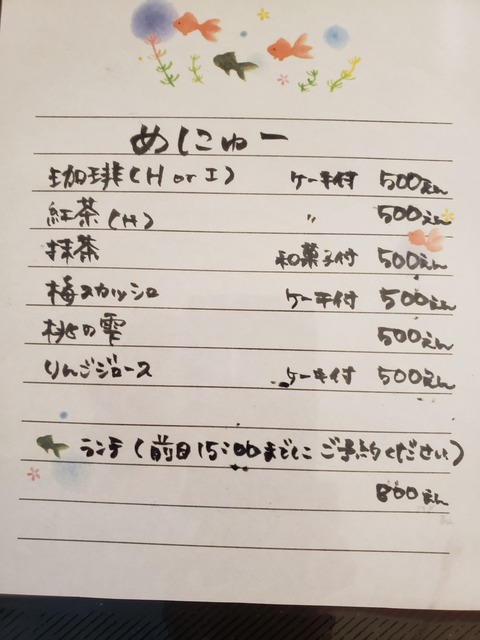 めにゅー
珈琲(H or I) ケーキ付 500えん
紅茶(H) 〃 500えん
抹茶 和菓子付 500えん
梅スカッシュ ケーキ付 500えん
桃の雫 500えん
りんごジュース ケーキ付 500えん
ランチ(前日15:00までにご予約ください)
800えん